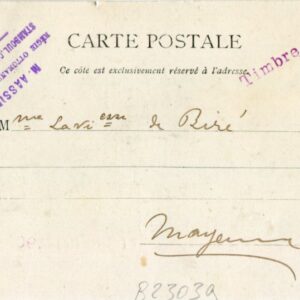 CARTE POSTALE
Ce côté est exclusivement réservé à l'adresse
Timbra
RÉGIE OTTOMAN
STAMBOUL
M
Mme La Vicesse de Biré
Mayenne
B23039